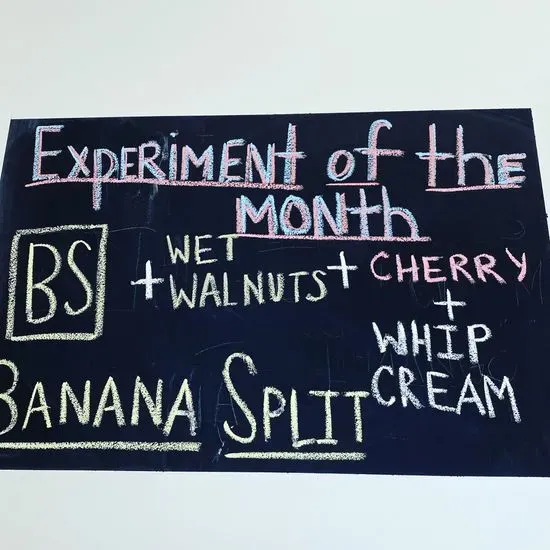 EXPERIMENT of the
MONth
BS + WET WALNUTS + CHERRY
+
WHIP
CREAM
BANANA SPLIT